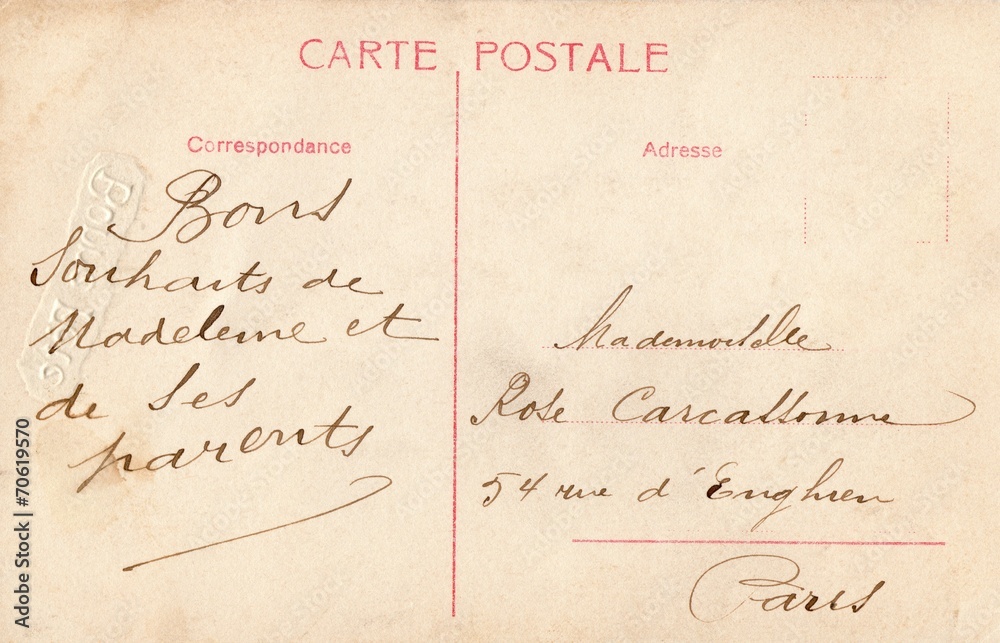 CARTE POSTALE
Correspondance
Bons
Souhaits de
Madeleine et
de Ses
parents
Adresse
Mademoiselle
Rose Carcassonne
54 rue d'Enghien
Paris
Adobe Stock | #70619570